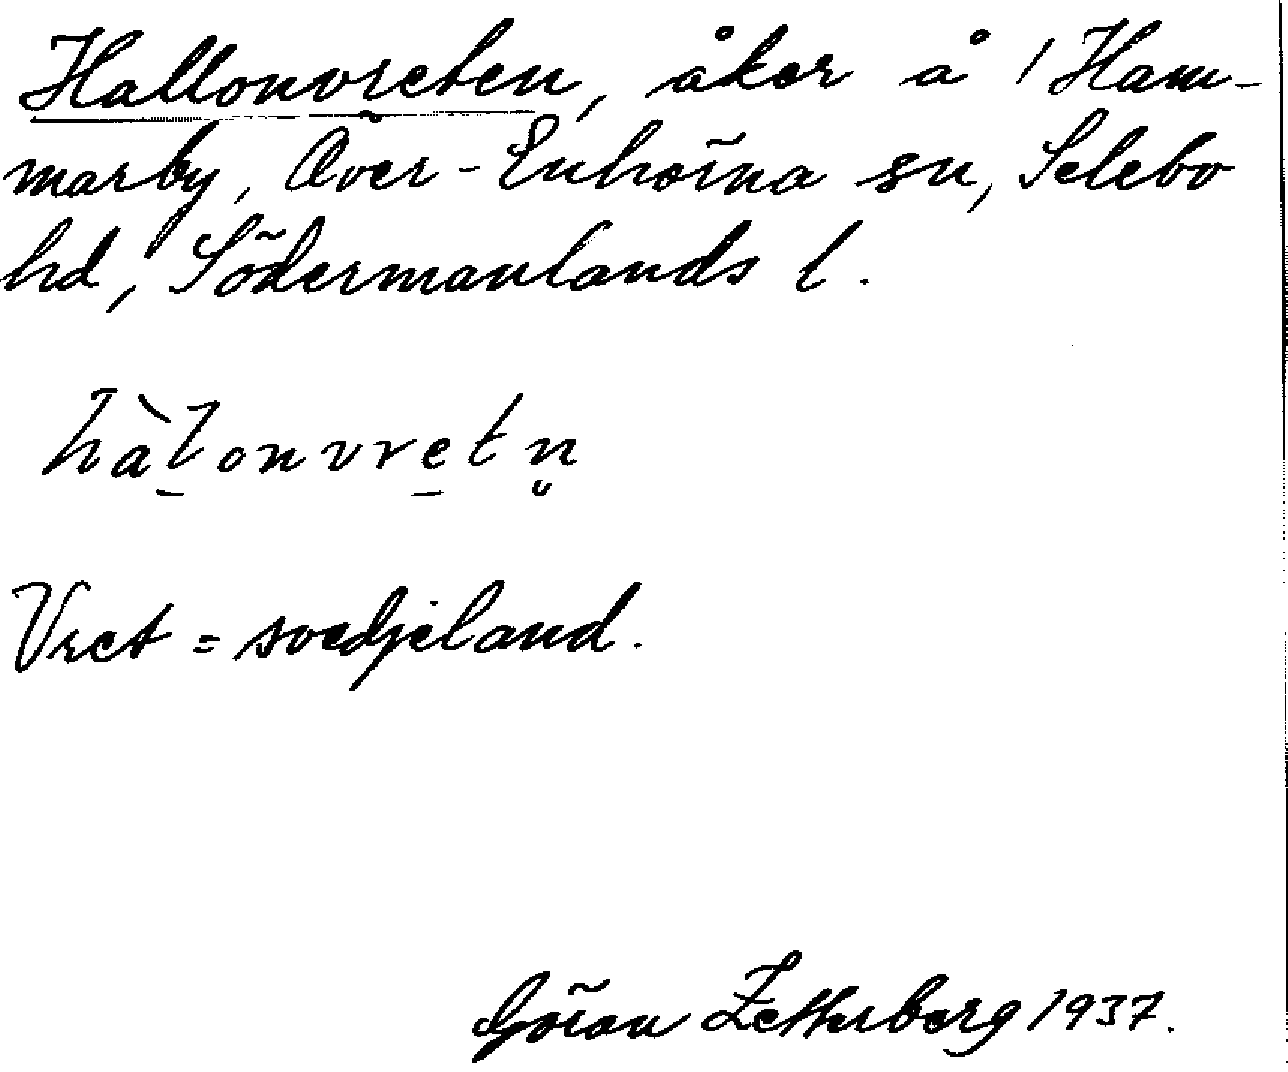 Hallonvreten, åker å 1 Ham-
marby, Över-Enhörna sn, Selebo
hd, Södermanlands l.
hàl̠onvre̠tn̥
Vret = svedjeland.
Göran Zetterberg 1937.